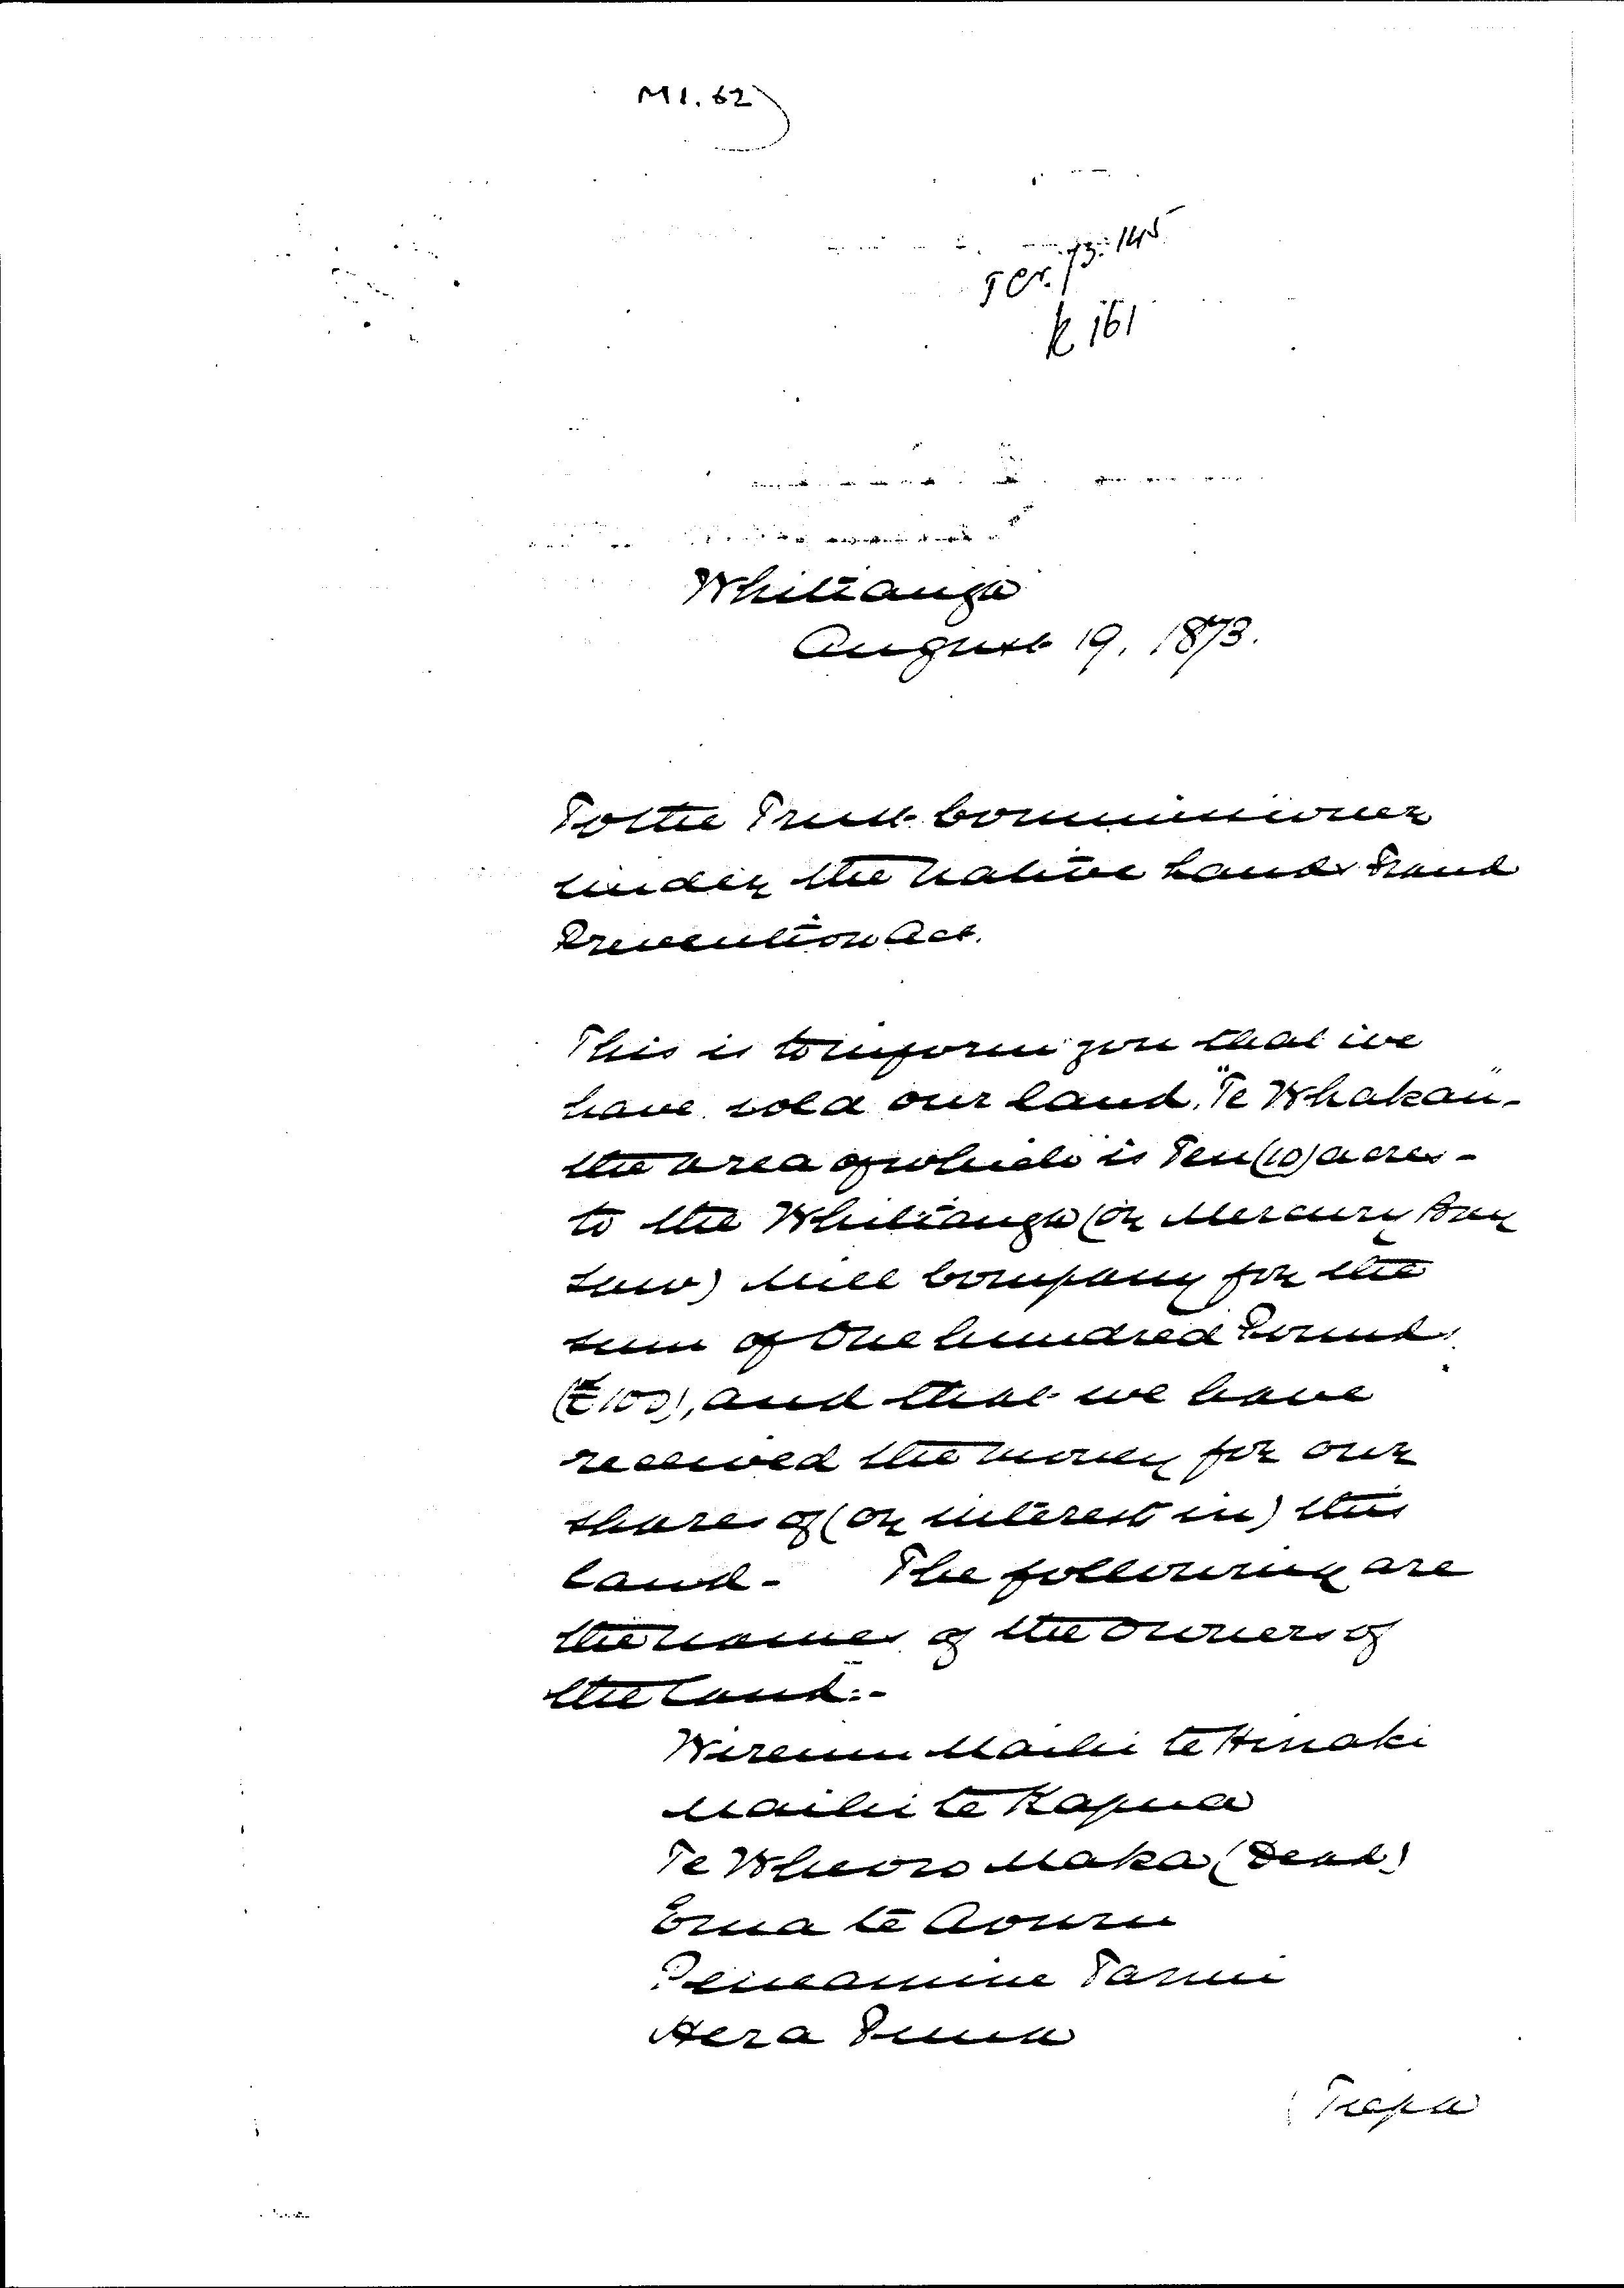 M1.62
Tcr. 73.145
R 161
Whitianga
August 19, 1873.
To the Trust Commissioner
under the Native Lands Fraud
Prevention Act.
This is to inform you that we
have sold our land, "Te Whakau" -
the area of which is Ten (10) acres -
to the Whitianga (or Mercury Bay
Saw) Mill Company for the
sum of One hundred Pounds
(£100), and that we have
received the money for our
shares of (or interest in) this
land - The following are
the names of the owners of
the land:-
Wiremu Maihi te Hinaki
Maihi te Kapua
Te Wheoro Maka (Dead)
Erua te Aouru
Peneamine Tanui
Hera Puna
(Trepa